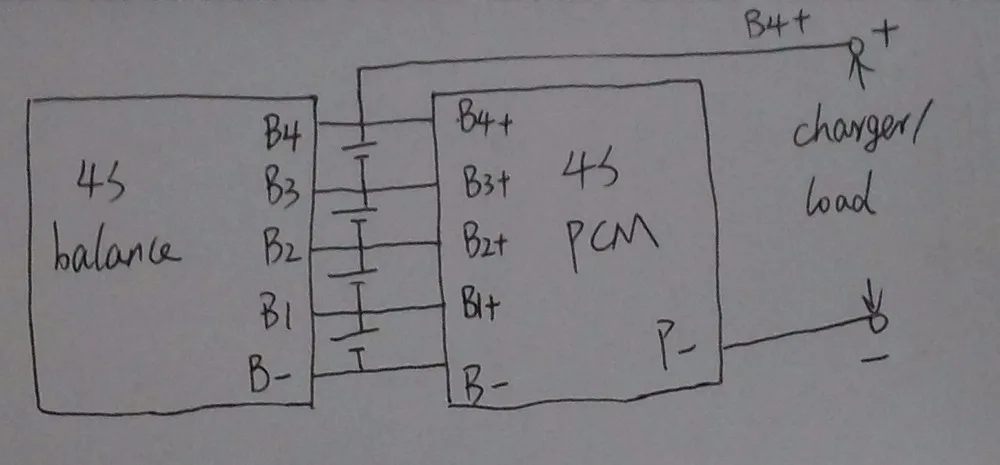 B4+
+
B4
B3
B2
B1
B-
4S
balance
B4+
B3+
B2+
B1+
B-
4S
PCM
P-
charger/
load
-